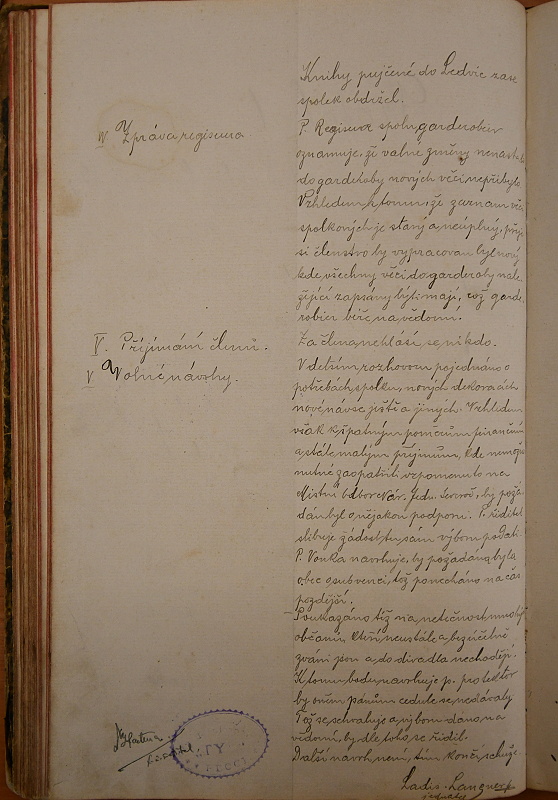 Knihy pujčené do Ledvic zase
spolek obdržel.
IV Zpráva regiseura.
P. Regiseur spolu garderobier
oznamuje, ži valné změny nenastal
do garderoby nových věcí nepřibylo.
Vzhledem k tomu, že zaznam věcí
spolkových je starý a neúplný, přeje
si členstvo by vypracovan byl nový
kde všechny věci do garderoby nale-
žející zapsány býti mají, což garde
robier béře na vědomí.
V. Přijímání členů.
Za člena nehlásí se nikdo.
V Volné návrhy.
V delším rozhovoru pojednáno o
potřebách spolku, nových dekoracích
nové návse jeviště a jiných. Vzhledem
však k špatným poměrům finančním
a stále malým příjmům, kde nemožno
nutné zaopatřiti vzpomenuto na
Místní odbor Nár. Jedn. Severoč. by požá-
dán byl o nějakou podporu. P. ředitel
slibuje žádost tu sám výboru podati.
P. Vonka navrhuje, by požádána byla
obec o subvenci, což ponecháno na čas
pozdější.
Poukazáno též na netečnost mnohých
občanů kteří neustále a bezúčelně
zváni jsou a do divadla nechodějí.
K tomu bodu navrhuje p. protektor
by oněm pánům cedule se nedávaly
Což se schvaluje a výboru dáno na
vědomí, by dle toho se řídil.
Další návrh není, tím končí schůze.
Ladis. Langner
jednatel
ředitel